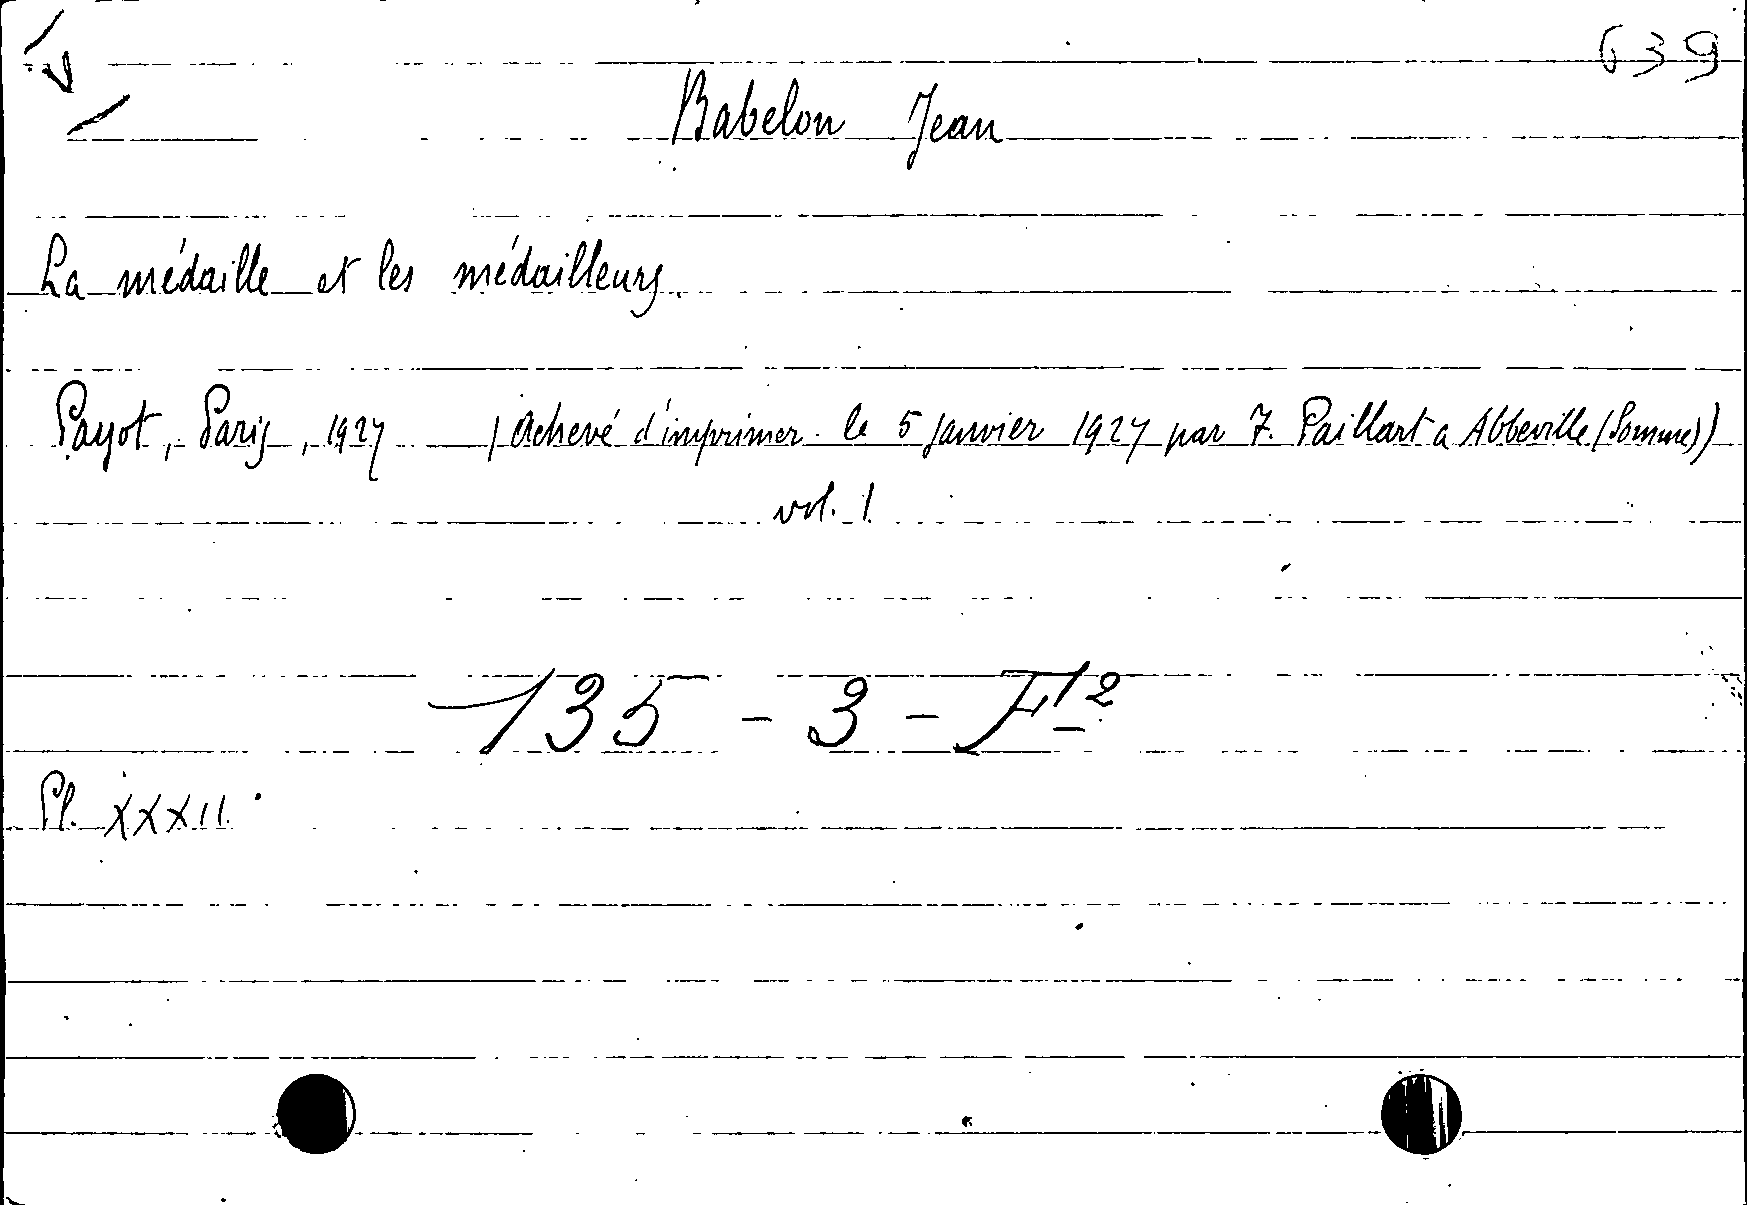 639
Babelon Jean
La médaille et les médailleurs.
Payot, Paris, 1927 (Achevé d'imprimer le 5 Janvier 1927 par F. Paillart a Abbeville (Somme))
vol. 1
135 - 3 - F12
Pl. XXXII.